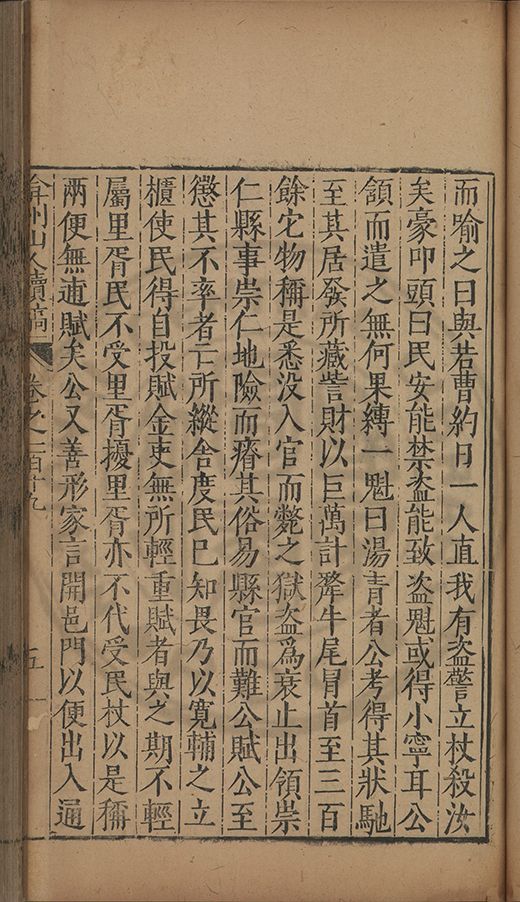 而喻之曰與若曹約日一人直我有盜警立杖殺汝
矣豪叩頭曰民安能禁盜能致盜魁或得小寧耳公
頷而遣之無何果縛一魁曰湯青者公考得其狀馳
至其居發所藏訾財以巨萬計犛牛尾冒首至三百
餘它物稱是悉没入官而斃之獄盜爲衰止出領崇
仁縣事崇仁地險而瘠其俗易縣官而難公賦公至
懲其不率者亡所縱舍度民巳知畏乃以寛輔之立
櫃使民得自投賦金吏無所輕重賦者與之期不輕
屬里胥民不受里胥擾里胥亦不代受民杖以是稱
兩便無逋賦矣公又善形家言開邑門以便出入通
弇州山人續稿 卷之一百十九 五